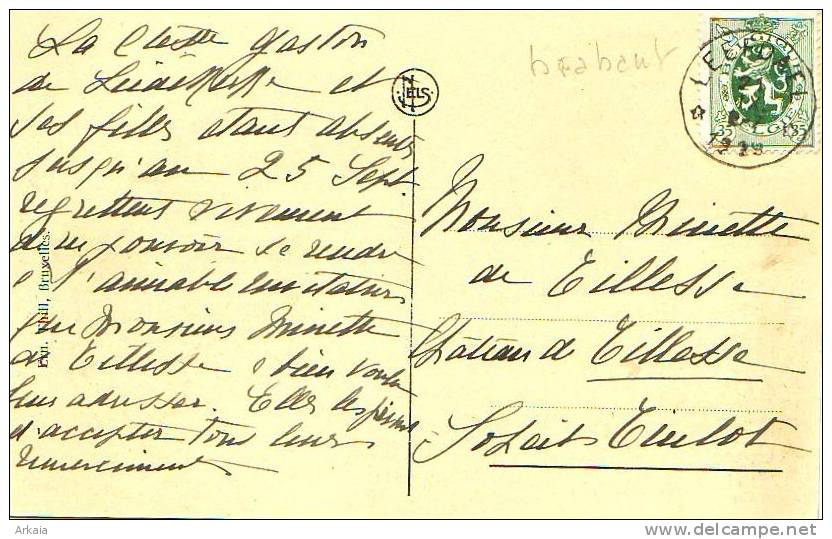 La Ctesse Gaston
de Liedekerke et
ses filles étant absents
jusqu'au 25 Sept.
regrettent vivement
de ne pouvoir se rendre
à l'aimable invitation
que Monsieur Minette
de Tillesse a bien voulu
leur adresser. Elles les prient
d'accepter tous leurs
remerciments
Bruxelles.
ELS
brabant
BELGIQUE
BELGIE
35 35
Monsieur Minette
de Tillesse
Château de Tillesse
Tinlot
Arkaia
http://www.delcampe.net